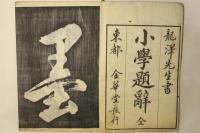 龍澤先生書
小學題辭 全
東都 金華堂發行
墨